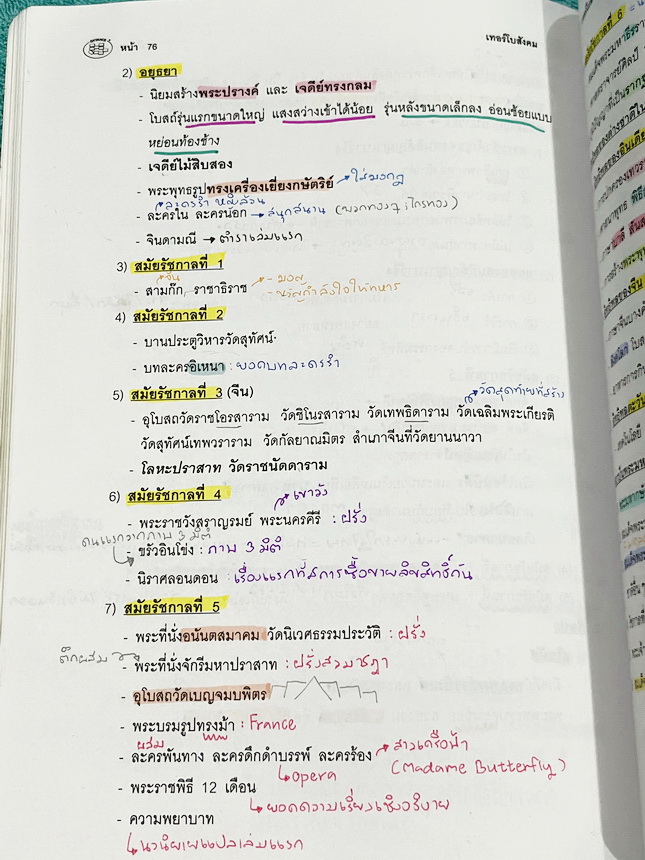 หน้า 76
เทอร์โบสังคม
2) อยุธยา
- นิยมสร้างพระปรางค์ และ เจดีย์ทรงกลม
- โบสถ์รุ่นแรกขนาดใหญ่ แสงสว่างเข้าได้น้อย รุ่นหลังขนาดเล็กลง อ่อนช้อยแบบ
หย่อนท้องช้าง
- เจดีย์ไม้สิบสอง
- พระพุทธรูปทรงเครื่องเยี่ยงกษัตริย์ ใส่มงกุฎ
ละครรำ หญิงล้วน
- ละครใน ละครนอก → สนุกสนาน
- จินดามณี → ตำราเล่มแรก
3) สมัยรัชกาลที่ 1
จีน
- สามก๊ก, ราชาธิราช - มอญ
- ขวัญกำลังใจให้ทหาร
4) สมัยรัชกาลที่ 2
- บานประตูวิหารวัดสุทัศน์
- บทละครอิเหนา : ยอดบทละครรำ
5) สมัยรัชกาลที่ 3 (จีน)
วัดสุดท้ายที่สร้าง
- อุโบสถวัดราชโอรสาราม วัดชิโนรสาราม วัดเทพธิดาราม วัดเฉลิมพระเกียรติ
วัดสุทัศน์เทพวราราม วัดกัลยาณมิตร สำเภาจีนที่วัดยานนาวา
- โลหะปราสาท วัดราชนัดดาราม
6) สมัยรัชกาลที่ 4
เขาวัง
- พระราชวังสราญรมย์ พระนครคีรี : ฝรั่ง
คนแรกวาดภาพ 3 มิติ
- ขรัวอินโข่ง : ภาพ 3 มิติ
- นิราศลอนดอน : เรื่องแรกที่มีการซื้อขายลิขสิทธิ์กัน
7) สมัยรัชกาลที่ 5
- พระที่นั่งอนันตสมาคม วัดนิเวศธรรมประวัติ : ฝรั่ง
ตึกผสม
- พระที่นั่งจักรีมหาปราสาท : ฝรั่งสวมชฎา
- อุโบสถวัดเบญจมบพิตร
- พระบรมรูปทรงม้า : France
ผสม
- ละครพันทาง ละครดึกดำบรรพ์ ละครร้อง สาวเครือฟ้า
opera (Madame Butterfly)
- พระราชพิธี 12 เดือน
ยอดความเรียงเชิงอธิบาย
- ความพยาบาท
นวนิยายแปลเล่มแรก